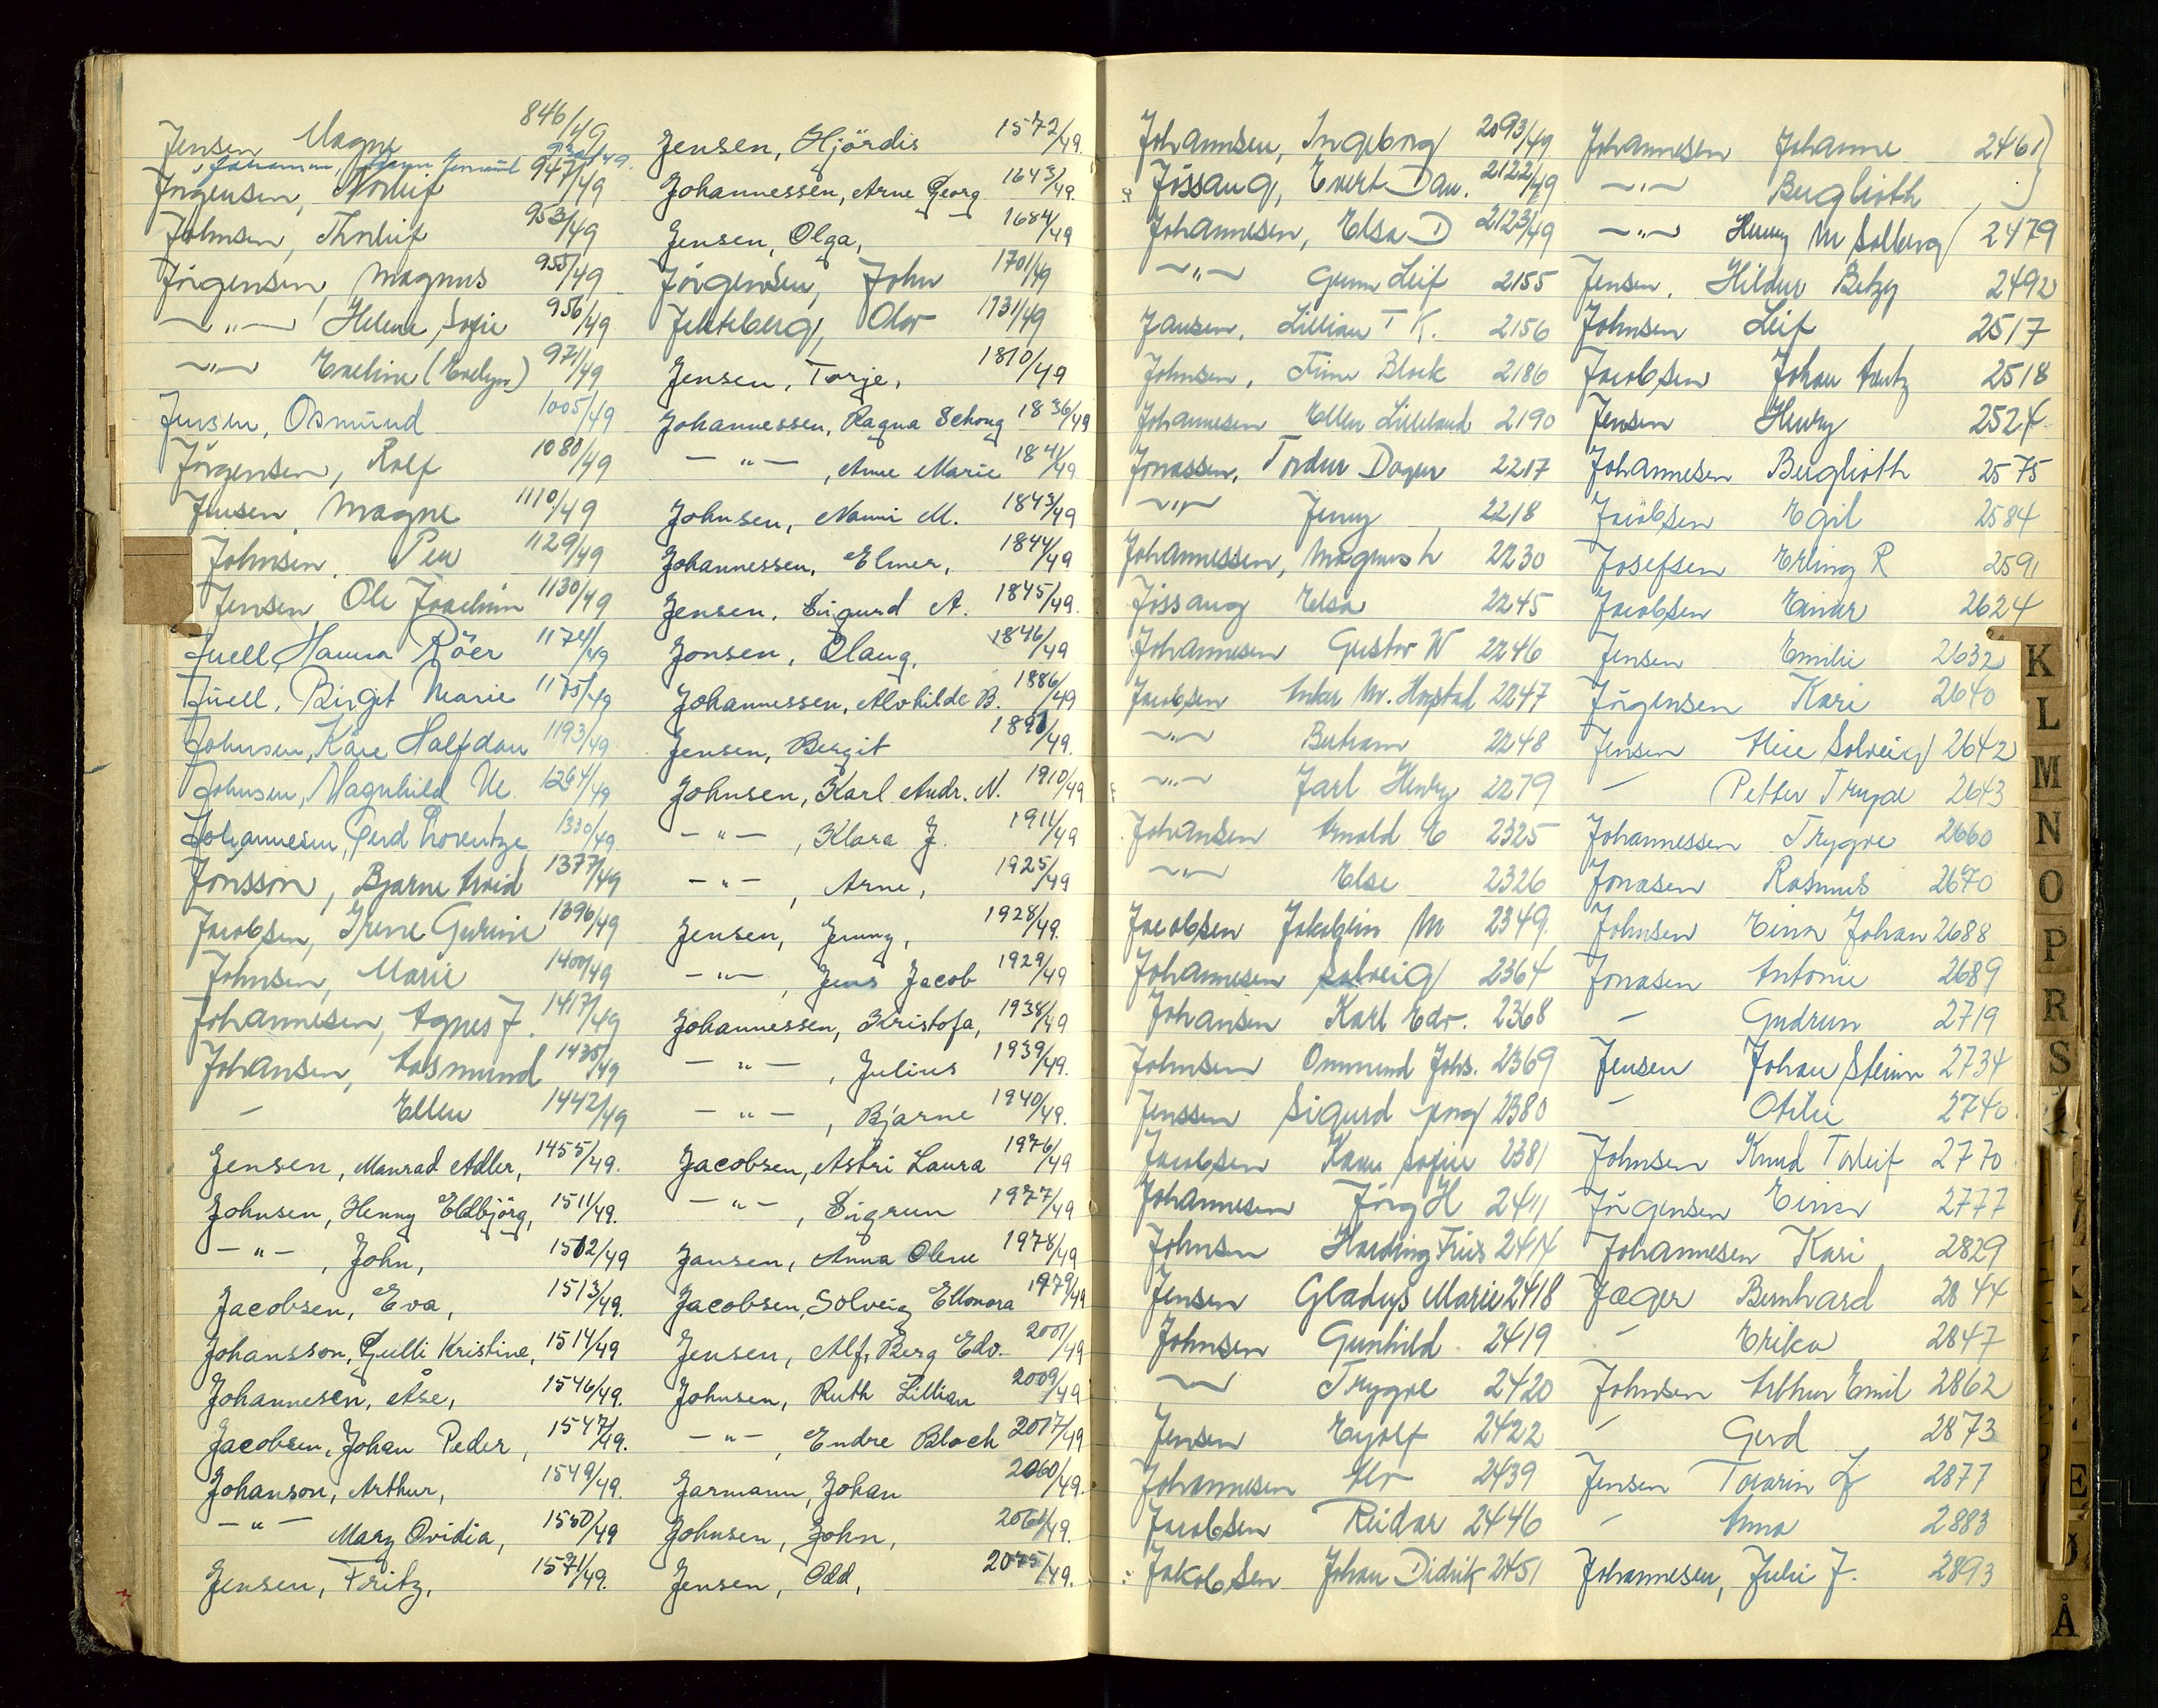 Jensen Magne 846/49
Johannesen,
Jörgensen, Torleif 947/49
Johnsen, Thorleif 953/49
Jörgensen, Magnus 955/49
—"— Helene Sofie 956/49
—"— Eveline (Evelyn) 971/49
Jensen, Osmund 1005/49
Jörgensen, Rolf 1080/49
Jensen, Magne 1110/49
Johnsen, Per 1129/49
Jensen Ole Joachim 1130/49
Juell, Hanna Röer 1174/49
Juell, Birgit Marie 1175/49
Johnsen, Kåre Halfdan 1193/49
Johnsen, Magnhild 1264/49
Johannesen, Gerd Lorentze 1330/49
Jonsson, Bjarne Arvid 1377/49
Jacobsen, Irene Gurine 1396/49
Johnsen, Marie 1400/49
Johannesen, Agnes J. 1417/49
Johansen, Aasmund 1435/49
— Ellen 1442/49
Jensen, Manrad Adler, 1455/49.
Johnsen, Henny Eldbjörg, 1511/49.
—"—, John, 1512/49
Jacobsen, Eva, 1513/49.
Johansson, Gulli Kristine, 1514/49
Johannesen, Åse, 1546/49.
Jacobsen, Johan Peder, 1547/49.
Johanson, Arthur, 1549/49.
—"— Mary Ovidia, 1550/49
Jensen, Fritz, 1571/49.
Jensen, Hjördis 1572/49.
Johannessen, Arne Georg 1643/49.
Jensen, Olga, 1684/49
Jörgensen, John 1701/49
Jekteberg, Olav 1731/49
Jensen, Torje, 1810/49
Johannessen, Ragna Sehong 1836/49
—"—, Anne Marie 1841/49
Johnsen, Nanni M. 1843/49
Johannessen, Elmer, 1844/49
Jensen, Sigurd A. 1845/49.
Jonsen, Olaug, 1846/49
Johannessen, Alvhilde B. 1886/49
Jensen, Bergit 1891/49.
Johnsen, Karl Andr. N. 1910/49
—"—, Klara J. 1911/49
—"—, Arne, 1925/49
Jensen, Jenny, 1928/49.
—"—, Jens Jacob 1929/49
Johannessen, Kristofa, 1938/49
—"—, Julius 1939/49.
—"—, Bjarne 1940/49.
Jacobsen, Astri Laura 1976/49
—"—, Sigrun 1977/49
Jansen, Anna Olene 1978/49
Jacobsen, Solveig Ellonora 1979/49
Jensen, Alf, Berg Edv. 2001/49
Johnsen, Ruth Lillian 2009/49
—"—, Endre Bloch 2017/49
Jarmann, Johan 2060/49.
Johnsen, John, 2061/49.
Jensen, Odd, 2075/49.
Johannsen, Ingeborg 2093/49
Jössang, Evert Dan. 2122/49
Johannesen, Elsa D 2123/49
—"— Gunn Leif 2155
Jansen, Lillian T K. 2156
Johnsen, Block 2186
Johannesen Ellen Lilleland 2190
Jonassen, Tordur Dagur 2217
—"— Jenny 2218
Johannessen, Magnus h 2230
Jössang Elsa 2245
Johannesen Gustav W 2246
Jacobsen Inker M. Hogstad 2247
—"— Bertram 2248
—"— Jarl Henry 2279
Johansen Arnold E 2325
—"— Else 2326
Jacobsen Jakobin M 2349.
Johannesen Solveig 2364
Johansen Karl Edv. 2368
Johnsen Ommund Johs. 2369
Jenssen Sigurd 2380
Jacobsen Karen Sofie 2381
Johannesen Jörg H 2411
Johnsen Harding Friis 2414
Jensen Gladys Marie 2418
Johnsen Gunhild 2419
— Trygve 2420
Jensen Eyolf 2422
Johannesen Alv 2439
Jacobsen Reidar 2446
Jakobsen Johan Didrik 2451
Johannesen Johanne 2461)
—"— Berglioth )
—"— Henny M Solberg 2479
Jensen, Hildur Betzy 2492
Johnsen Leif 2517
Jacobsen Johan Arntz 2518
Jensen Henry 2524
Johannesen Berglioth 2575
Jacobsen Egil 2584
Josefsen Erling R 2591
Jacobsen Einar 2624
Jensen Emilie 2632
Jörgensen Kari 2640
Jensen Alice Solveig 2642
— Petter Trygve 2643
Johannessen Trygve 2660
Jonasen Rasmus 2670
Johnsen Einar Johan 2688
Jonasen Antonie 2689
— Gudrun 2719
Jensen Johan Steinar 2734
— Otilie 2740
Johnsen Knud Torleif 2770
Jörgensen Einar 2777
Johannesen Kari 2829
Jæger Bernhard 2844
— Erika 2847
Johnsen Arthur Emil 2862
— Gerd 2873
Jensen Torarin 2877
— Anna 2883
Johannesen, Julie J. 2893
K
L
M
N
O
P
R
S
E
Å